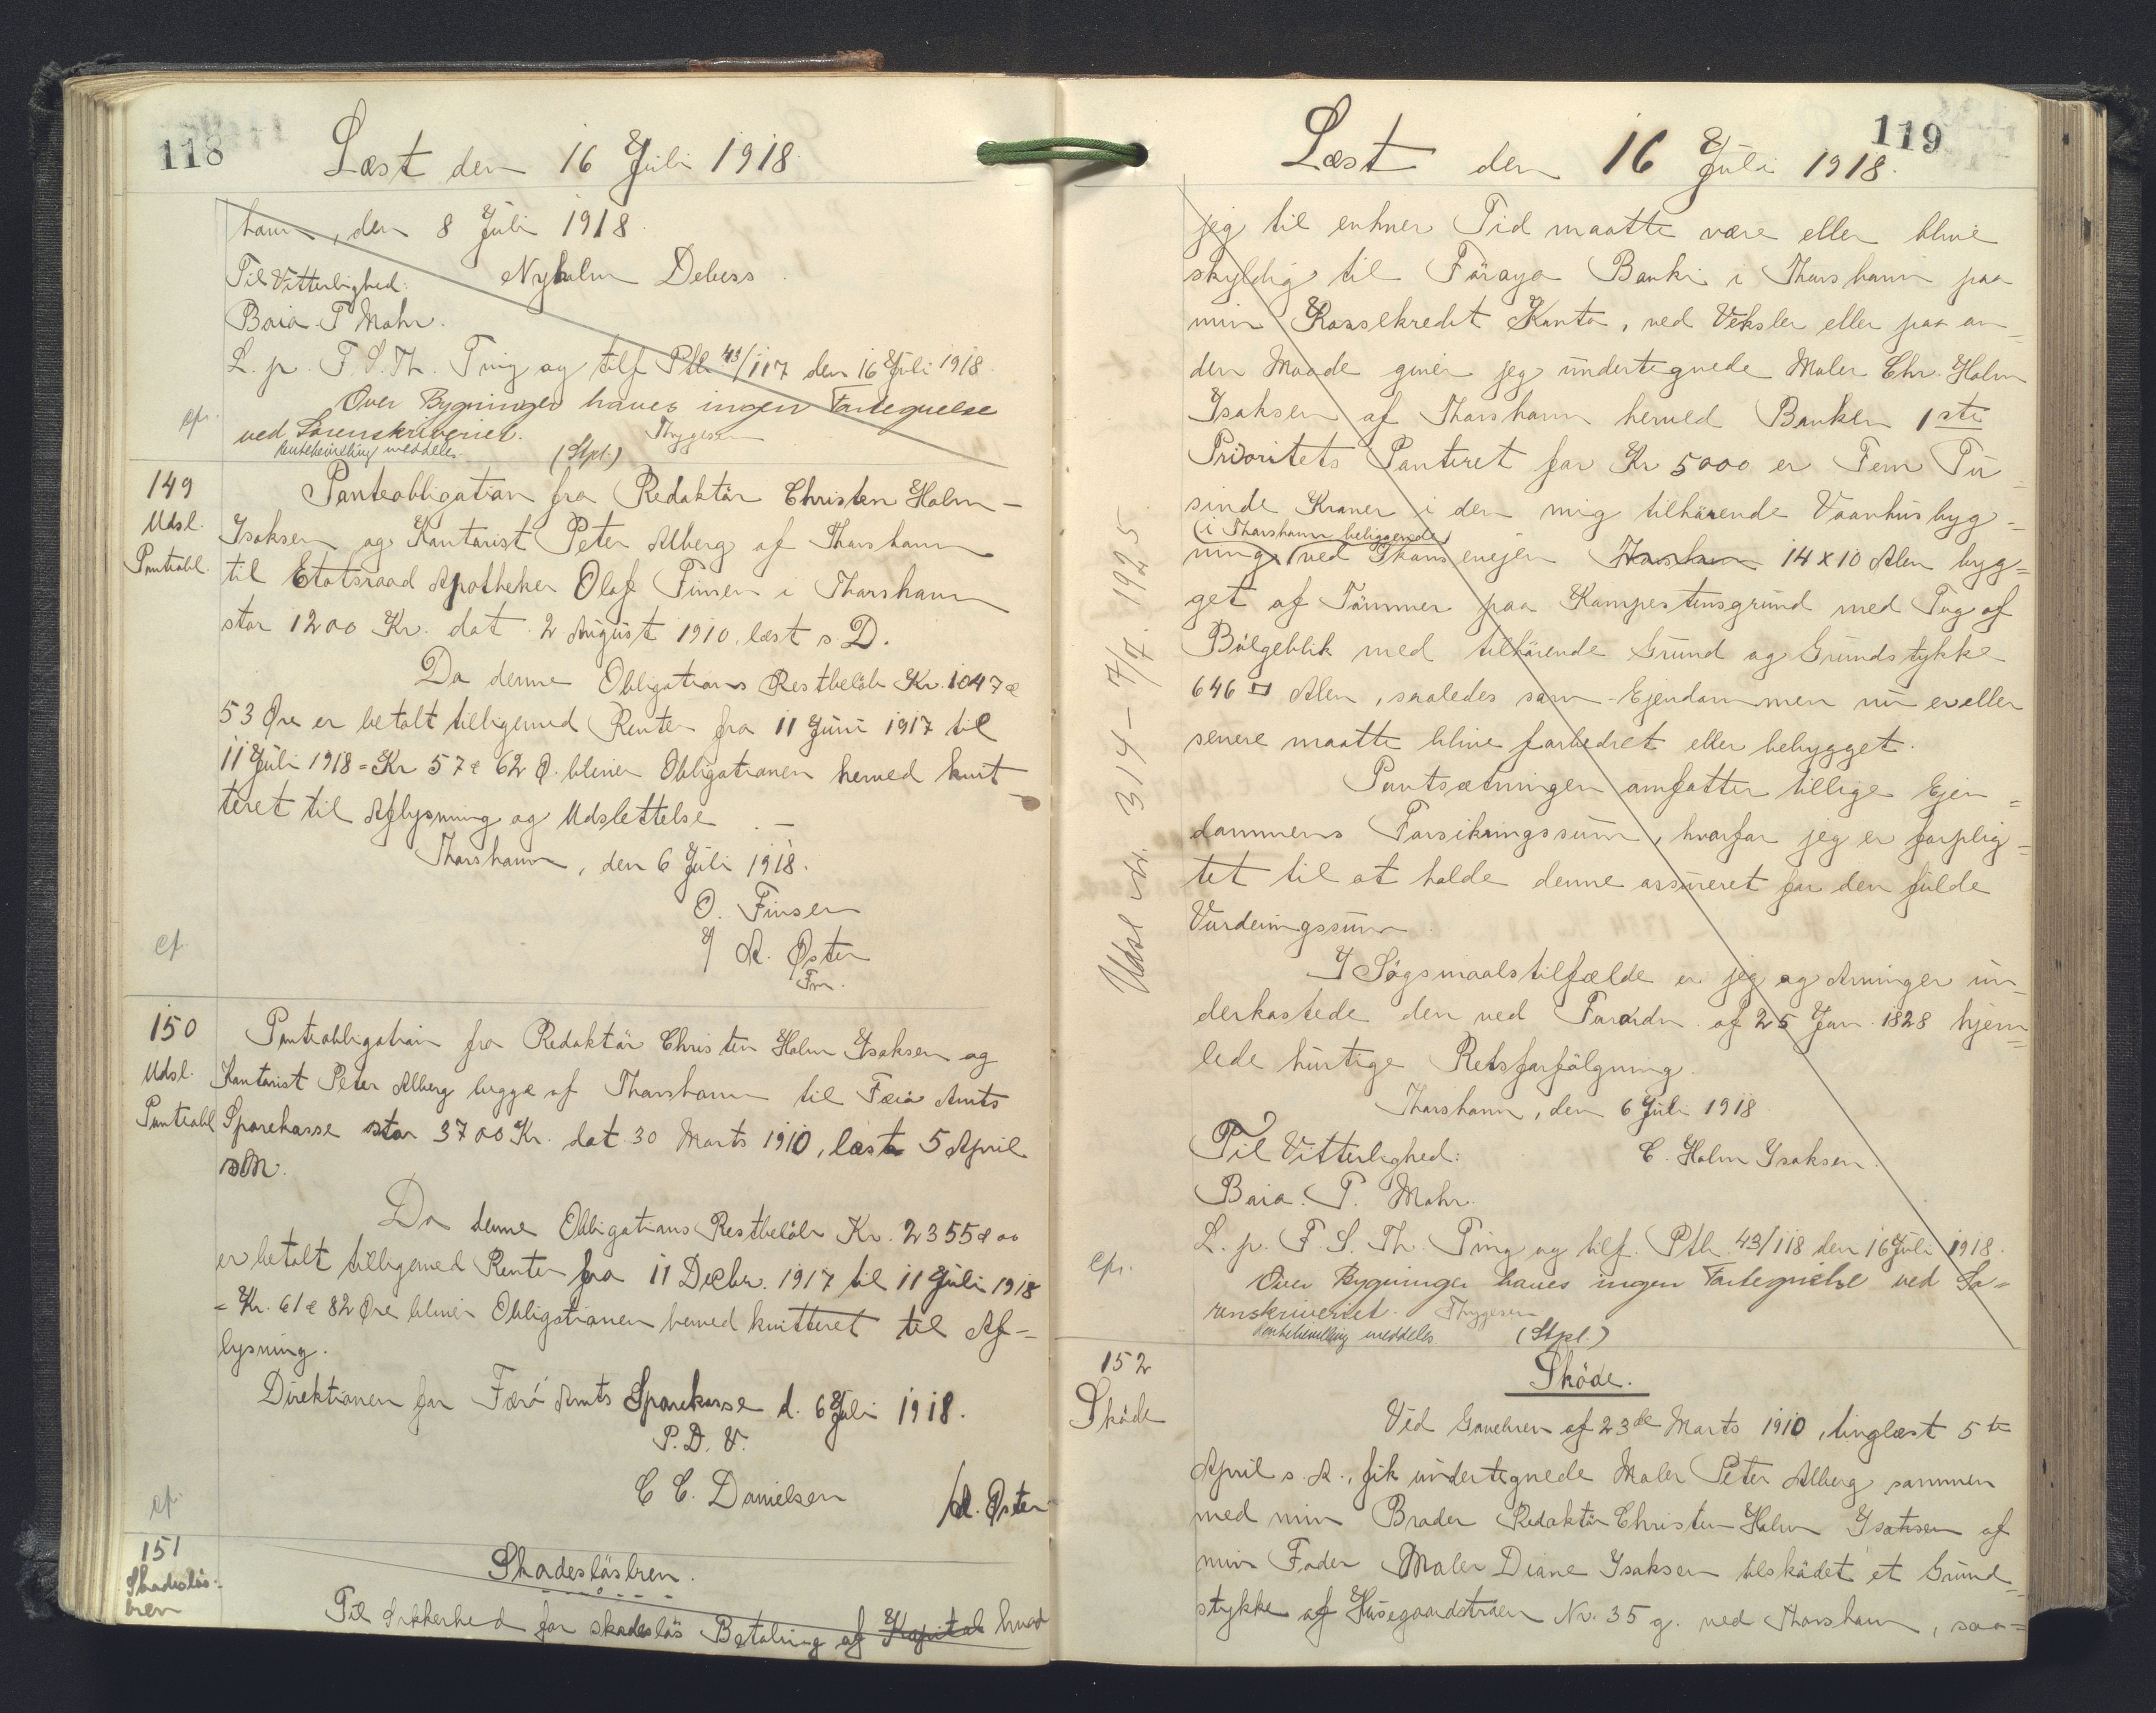 118
Læst den 16 Juli 1918.
havn, den 8 Juli 1918.
Til Vitterlighed: Nyholm Debess.
Baia P Mohr.
L. p. F. S. Th. Ting og tilf Ptb. 43/117 den 16 Juli 1918.
Over Bygninger haves ingen Fortegnelse
cfr. ved Sorenskriveriet. Thygesen
meddeles. (Stpl.)
149
Udsl.
Panteobl.
Panteobligation fra Redaktör Christen Holm-
Isaksen og Kontorist Peter Alberg af Thorshavn
til Etatsraad Apotheker Olaf Finsen i Thorshavn
stor 1200 Kr. dat. 2 August 1910, læst s. D.
Da denne Obligations Restbelöb Kr. 1047 æ
53 Öre er betalt tilligemed Renter fra 11 Juni 1917 til
11 Juli 1918 = Kr 57 æ 62 Ö. bliver Obligationen herved kvit
teret til Aflysning og Udslettelse. -
Thorshavn, den 6 Juli 1918.
O. Finsen
cf. / A. Øster
Fm.
150
Udsl.
Panteobl
Panteobligation fra Redaktör Christen Holm Isaksen og
Kontorist Peter Alberg begge af Thorshavn til Færö Amts
Sparekasse stor 3700 Kr. dat. 30 Marts 1910, læst 5 April
s M.
Da denne Obligations Restbelöb Kr. 2355 æ 00
er betalt tilligemed Renter fra 11 Decbr. 1917 til 11 Juli 1918
= Kr. 61 æ 82 Öre bliver Obligationen herved kvitteret til Af=
lysning.
Direktionen for Færö Amts Sparekasse d. 6 Juli 1918.
P. D. V.
C C. Danielsen /A. Øster
cf.
151
Skadeslös=
brev
Skadeslösbrev.
Til Sikkerhed for skadeslös Betaling af Kapital hvad
119
Læst den 16 Juli 1918.
jeg til enhver Tid maatte være eller blive
skyldig til Föroya Banki i Thorshavn paa
min Kassekredit Konto, ved Veksler eller paa an=
den Maade giver jeg undertegnede Maler Chr. Holm
Isaksen af Thorshavn herved Banken 1ste
Prioritets Panteret for Kr 5000 er Fem Tu
sinde Kroner i den mig tilhörende Vaanhusbyg=
(i Thorshavn beliggende)
ning ved Skansevejen Thorshavn 14 x 10 Alen byg=
get af Tömmer paa Kampestensgrund med Tag af
Bölgeblik med tilhörende Grund og Grundstykke
646 □ Alen, saaledes som Ejendommen nu er eller
senere maatte blive forbedret eller bebygget.
Pantsætningen omfatter tillige Ejen=
dommens Forsikringssum, hvorfor jeg er forplig=
tet til at holde denne assureret for den fulde
Vurderingssum.
I Sögsmaalstilfælde er jeg og Arvinger un=
derkastede den ved Forordn. af 25 Jan. 1828 hjem=
lede hurtige Retsforfölgning.
Thorshavn, den 6 Juli 1918
Til Vitterlighed: C. Holm Isaksen.
Baia. P. Mohr.
L. p. F. S. Th. Ting og tilf. Ptb. 43/118 den 16 Juli 1918.
cfr. Over Bygninger haves ingen Fortegnelse ved So=
renskriveriet. Thygesen
meddeles (Stpl.)
Udsl. Nr. 314 - 7/7. 1925
152
Sköde
Sköde.
Ved Gavebrev af 23de Marts 1910, tinglæst 5te
April s. A., fik undertegnede Maler Peter Alberg sammen
med min Broder Redaktör Christen Holm Isaksen af
min Fader Maler Diane Isaksen tilsködet et Grund=
stykke af Husegaardstraen Nr. 35 g. ved Thorshavn, saa=